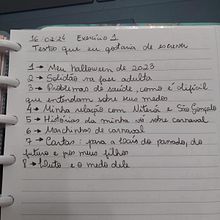 16.02.24 Exercício 1
Textos que eu gostaria de escrever
1 → Meu halloween de 2023
2 → Solidão na fase adulta
3 → Problemas de saúde, como é difícil
que entendam sobre seus medos
4 → Minha relação com Niterói e São Gonçalo
5 → Histórias da minha vó sobre carnaval
6 → Machinhas de carnaval
7 → Cartas: para a Isis do passado, do
futuro e pros meus filhos
8 → Luto e o medo dele